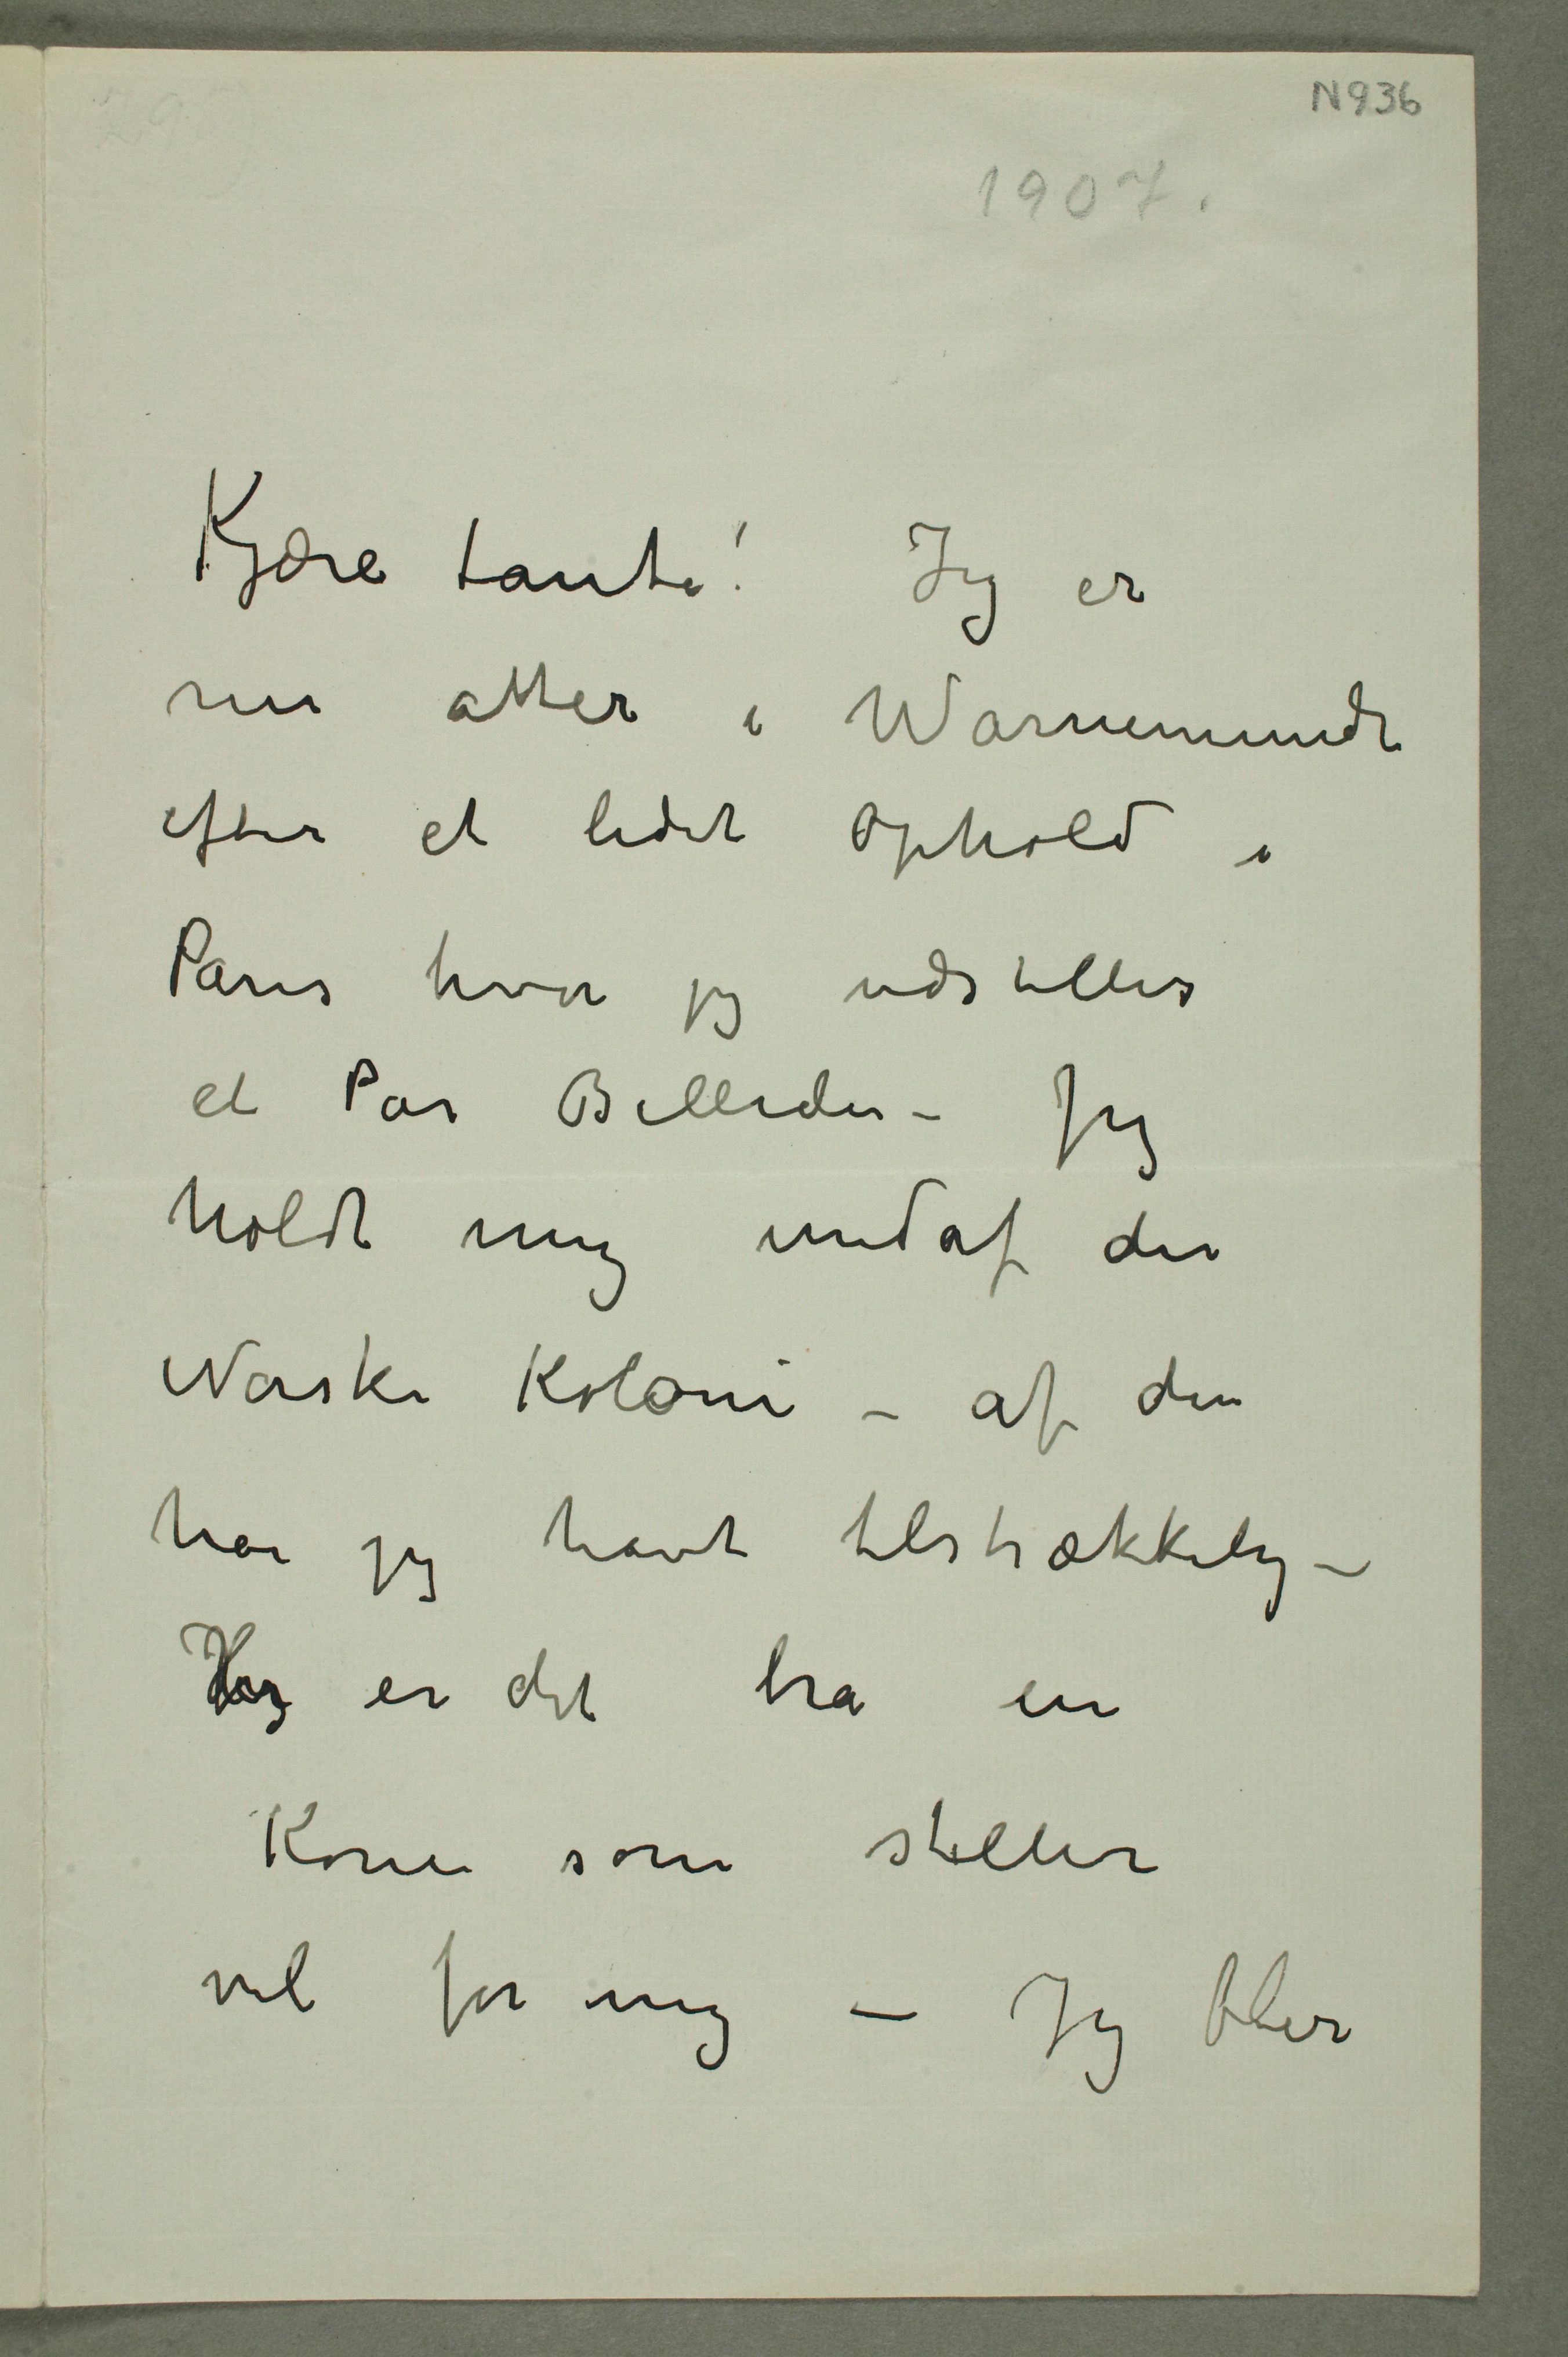 N936
1907.
Kjære tante! Jeg er
nu atter i Warnemünde
efter et lidet Ophold i
Paris hvor jeg udstilles
et Par Billeder – Jeg
holdt mig undaf den
Norske Koloni – af den
har jeg havt tilstrækkelig –
Her er det bra en
Kone som steller
vel for mig – Jeg blir